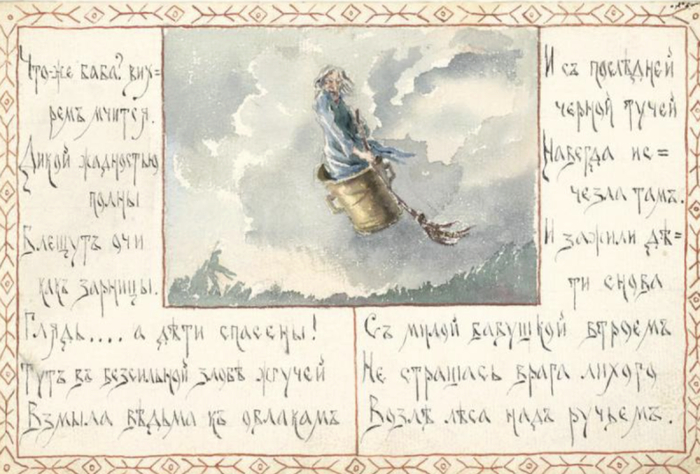 Что-же баба? вих=
ремъ мчится.
Дикой жадностью
полны
Блещутъ очи
какъ зарницы.
Глядь.... а дѣти спасены!
Тутъ въ безсильной злобѣ жгучей
Взмыла вѣдьма къ облакамъ
И съ послѣдней
черной тучей
Навсегда ис=
чезла тамъ.
И зажили дѣ=
ти снова
Съ милой бабушкой втроемъ
Не страшась врага лихого
Возлѣ лѣса надъ ручьемъ.